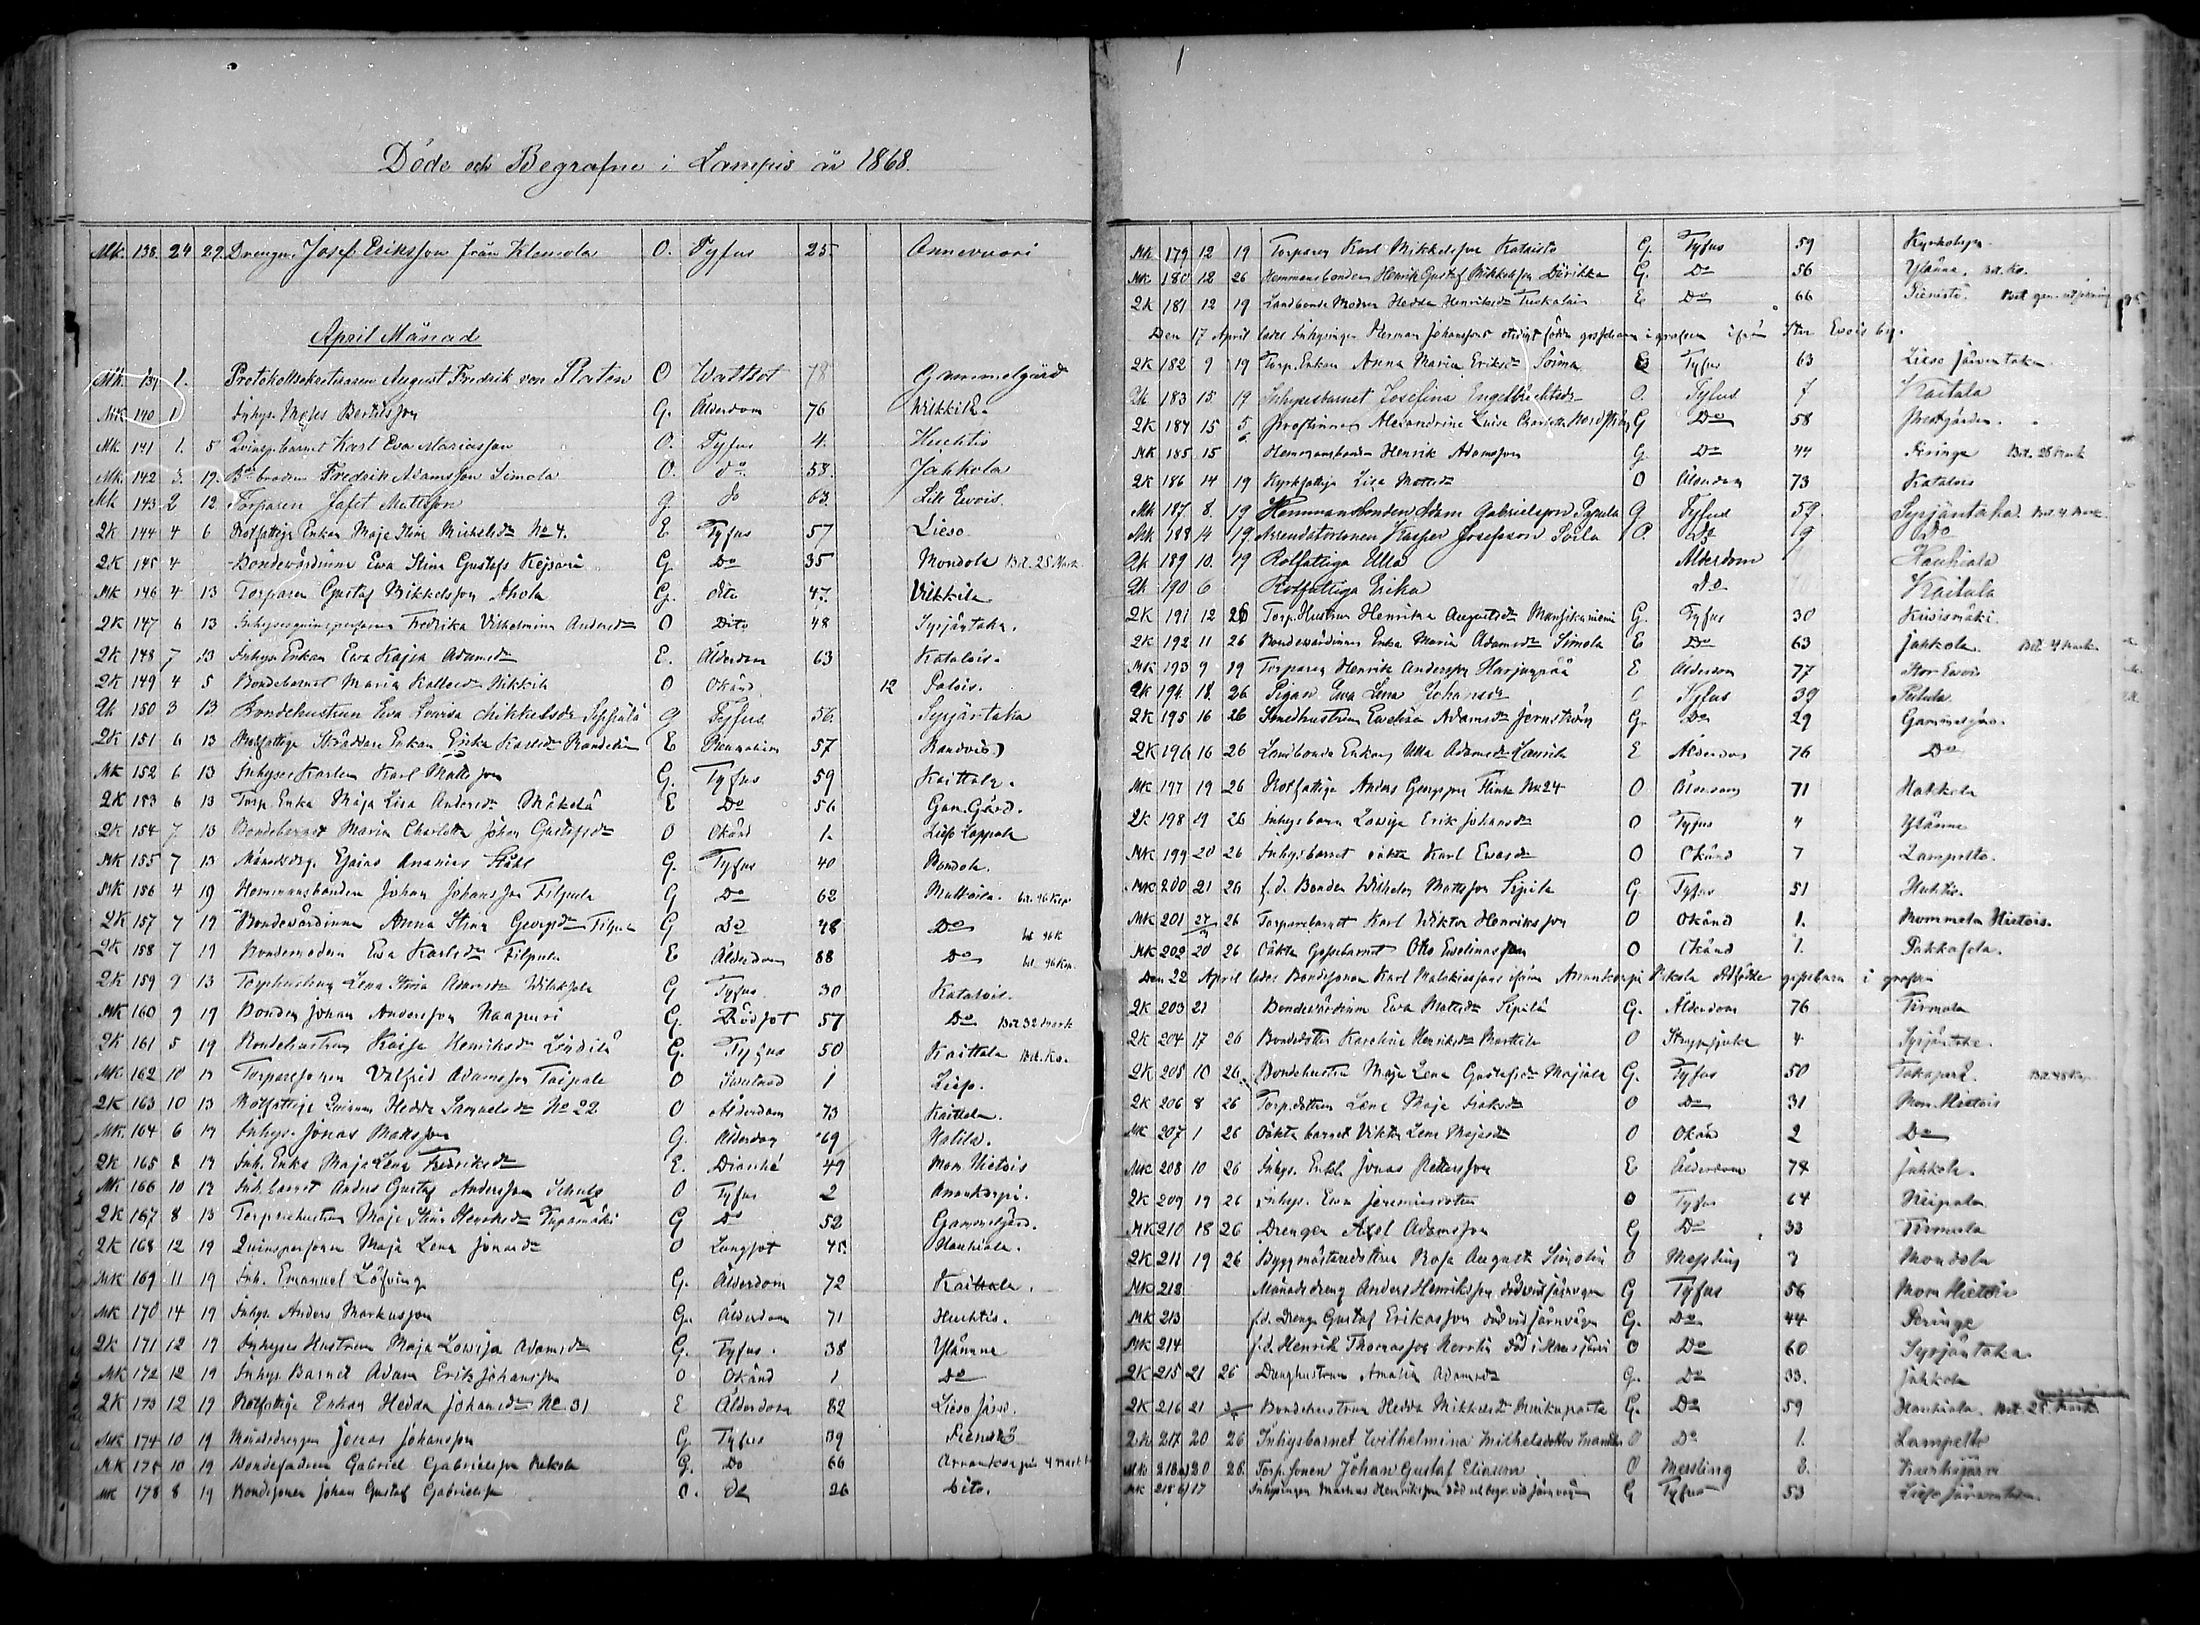 Döde och Begrafne i Lampis år 1868.
Mk. 138 24 29 Drengen Josef Eriksson från Klemola O. Tyfus 25. Annevuori
April Månad
Mk. 139 1. August Fredrik von Platen O Wattsot 78 Gammelgård
Mk 140 1 Inhys. Moses Bertilsson G. Ålderdom 76 Wilkkilä.
Mk. 141 1. 5 Karl Eva Mariasson O. Tyfus 4. Huchtis
Mk. 142 3. 19. Fredrik Adamsson Simola O. do 53. Jahkola
Mk 143 2 12 Torparen Jafet Mattsson G do 63. Lill Evois.
QK 144 4 6 Rotfattige Enkan Maja Stina Michelsdr No 4. E Tyfus 57 Lieso
QK 145 4 Bondevärdinnan Ewa Stina Gustafs G Do 35 Mondola Bet. 25 Mark
MK 146 4 13 Torparen Gustaf Mikkelsson Ahola G. dito 47. Vilkkilä
QK 147 6 13 Fredrika Vilhelmina Andersdr O Dito 48 Syrjäntaka.
QK 148 7 13 Inhys Enkan Ewa Kajsa Adamsdr E. Ålderdom 63 Katalois.
QK 149 4 5 Bondebarnet Maria O Okänd 12 Palois.
Qk 150 3 13 Bondehustrun Eva Lovisa Mikkelsdr G Tyfus 56. Syrjäntaka
QK 151 6 13 Rotfattige Skräddare Enkan Erika E 57
MK 152 6 13 Karl Mattsson G. Tyfus 59 Kaittala.
QK 153 6 13 Torp. Enka Maja Lisa Andersdr Mäkelä E Do 56 Gam. Gård.
QK 154 7 13 Bondebarnet Maria Charlotta Johan Gustafsdr O Okänd 1. Lieso Lappola
MK 155 7 13 Ananias Ståhl G. Tyfus 40 Mondola.
MK 156 4 19 Hemmansbonden Johan Johansson Filpula G Do 62
QK 157 7 19 Bondevärdinnan Anna Stina Georgsdr Filpula G Do 48 Do
QK 158 7 19 Bondemodren Ewa Karlsdr Filpula E Ålderdom 88 Do
QK 159 9 13 Torphustrun Lena Stina Adamsdr G Tyfus. 30 Katalois.
MK 160 9 19 Bonden Johan Andersson Naapuri G. Rödsot 57 Do Bet 32 mark
QK 161 5 19 Bondehustrun Kajsa Henriksdr G. Tyfus 50 Kaittala Bet. Ko.
MK 162 10 19 Torparesonen Valfrid Adamsson Taipale O 1 Lieso.
QK 163 10 13 Rotfattige Hedda Samuelsdr No 22. O Ålderdom 73 Kaittala.
MK. 164 6 19 Inhys. Jonas Mattsson G. Ålderdom 69
QK 165 8 19 Inh. Enka Maja Lena Fredriksdr E. Diarrhé 49 Mom Hietois
MK 166 10 19 Inh. barnet Anders Gustaf Andersson O Tyfus 2 Anankorpi.
QK 167 8 13 Torparehustrun Maja Stina Henriksdr G Do 52 Gammelgård.
QK 168 12 19 Maja Lena Jonasdr O Lungsot 45. Hauhiala.
MK 169 11 19 Inh. Emanuel Löfving G. Ålderdom 72 Kaittala.
MK 170 14 19 Inhys. Anders Markusson G. Ålderdom 71 Huchtis.
QK 171 12 19 Inhyses Hustrun Maja Lowisa Adamsdr G. Tyfus. 38 Ylänne
MK 172 12 19 Inhys. Barnet Adam Erik Johansson O Okänd 1. Do
QK 173 12 19 Rotfattige Enkan Hedda Johansdr No 31 E Ålderdom 82 Lieso Järv.
MK 174 10 19 Månadsdrengen Jonas Johansson G Tyfus 39
MK 175 10 19 Bondefadren Gabriel Gabrielsson G. Do 66
MK 178 8 19 Bondesonen Johan Gustaf Gabrielsson O. do 26 Dito.
MK 179 12 19 Torparen Karl Mikkelsson Kataisto G. Tyfus 59
MK 180 12 26 Hemmansbonden Henrik Gustaf Mikkelsson G. Do 56 Ylänne. Bet. Ko.
QK 181 12 19 Landbonde Modren Hedda Henriksdr E Do 66
Den 17 April lades Inhysingen Herman Johanssons gossebarn i grafven ifrån Stor Evois by.
QK 182 9 19 Torp. Enkan Anna Maria Eriksdr E Tyfus 63 Lieso
Qk 183 15 19 Inhysesbarnet Josefina Engelbrechtsdr O. Tyfus 7 Kaitala
QK 184 15 5 Prostinnan Alexandrina Luisa Charlotta G Do 58 Prestgården.
MK 185 15 Hemmansbonden Henrik Adamsson G Do 44 Bet. 28 mark
QK 186 14 19 Kyrkfattige Lisa Mattsdr O Ålderdom 73 Katalois
Mk 187 8. 19 Hemmansbonden Adam Gabrielsson G Tyfus 59. Syrjäntaka
Mk 188 14 19 Arrendatorsonen Kasper Josefsson O. Do 19 Do
Qk 189 10. 19 Rotfattiga Ulla Ålderdom Hauhiala
Qk 190 6 Rotfattiga Erika Do Kaitala
QK 191 12 26 Torp. Hustrun Henrika Augustsdr Mansikkaniemi G. Tyfus 30
QK 192 11 26 Bondevärdinnan Enka Maria Adamsdr Simola E Do 63 Jahkola Bet. 4 mark
MK 193 9 19 Torparen Henrik Andersson Harjunpää E Ålderdom 77 Stor Evois
QK 194 18 26 Pigan Ewa Lena Johansdr Tyfus 39
QK 195 16 26 Smedhustrun Evelina Adamsdr Jernström G. Do 29 Gammelgård.
QK 196 16 26 Landbonde Enkan Ulla Adamsdr E Ålderdom 76 Do
MK 197 19 26 Rotfattige Anders Georgsson No 24 O Ålderdom 71
QK 198 19 26 Inhys barn Lowisa Erik Johansdr O Tyfus 4 Ylänne
MK 199 20 26 Inhysbarnet oäkta Karl O Okänd 7 Lampelto.
MK 200 21 26 f.d. Bonden Wilhelm Mattsson G. Tyfus 51 Huhtis.
MK 201 27 26 Torparebarnet Karl Wiktor Henriksson O Okänd 1. Mommela Hietois.
MK 202 20 26 Oäkta Gossebarnet Otto Evelinasson O Okänd 1. Pakkasela.
Den 22 April lades Bondesonen Karl ifrån Anankorpi gossebarn i grafven
QK 203 21 Bondevärdinnan Ewa Mattsdr G. Ålderdom 76 Tirmula
QK 204 17 26 Bondedotter Karolina Henriksdr Marttila O Strypsjuka 4 Syrjäntaka.
QK 205 10 26 Bondehustru Maja Lena Gustafsdr G. Tyfus 50
QK 206 8 26 Torp. dottren Lena Maja O Do 31 Mom. Hietois
MK 207 1 26 Oäkta barnet Viktor Lena Majas O Okänd 2 Do
MK 208 10 26 Inhys. Enkl. Jonas Pettersson E Ålderdom 74 Jahkola.
QK 209 19 26 Inhys. Ewa Jeremiasdotter O Tyfus 64
MK 210 18 26 Drengen Axel Adamsson G Do 33 Tirmula
QK 211 19 26 Byggmästaredottren Rosa August O Messling 3 Mondola
MK 212 Månadsdreng Anders Henriksson död vid järnvägen G Tyfus 56 Mom Hietois
MK 213 f.d. Dreng Gustaf Eriksson död vid järnvägen G. Do 44 Peringe
MK 214 f.d. Henrik Thomasson död i O Do 60 Syrjäntaka
QK 215 21 26 Drenghustrun Amalia Adamsdr G. Do 33. Jahkola
QK 216 21 Bondehustrun Hedda Mikkelsdr G. Do 59 Hauhiala. Bet. 25 Mark
QK 217 20 26 Inhysbarnet Wilhelmina O Do 1. Lampelto
Mk 218a) 20 26. Torp. sonen Johan Gustaf O Messling
MK 218 b) 17 Inhysingen Markus Henriksson död och begr. vid järnvägen G Tyfus 53